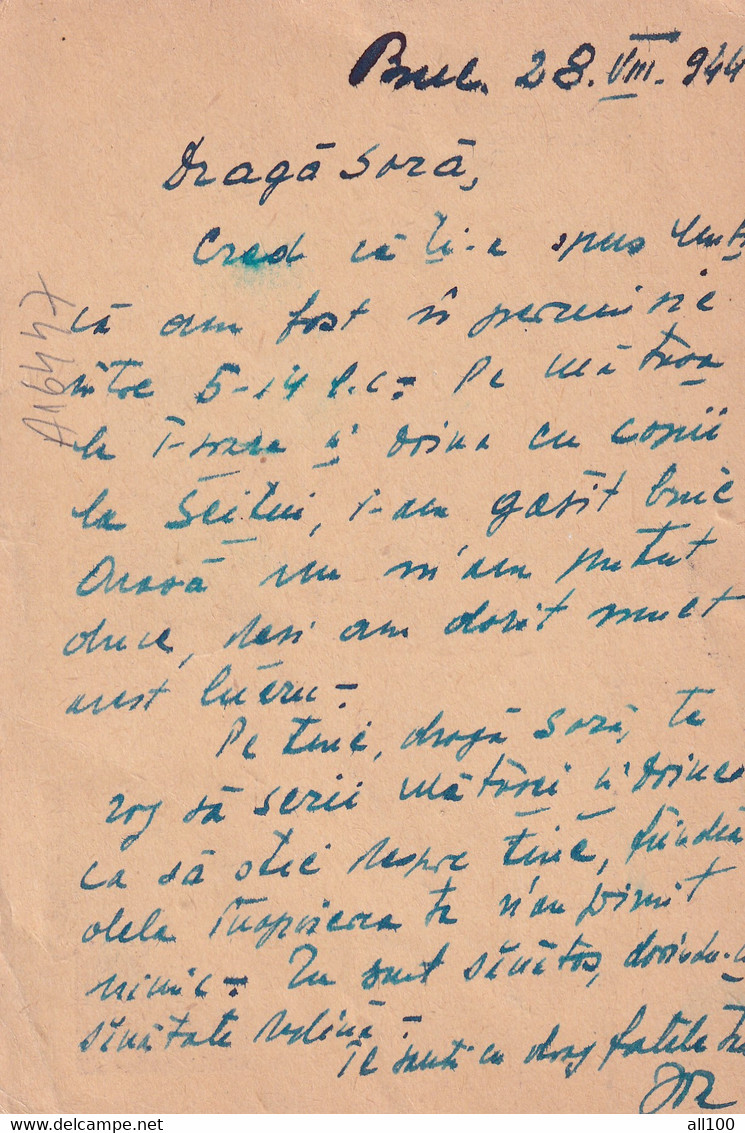 Buc. 28.VIII.944
Dragă Soră,
Cred că ți-a spus
că am fost în permisie
între 5-14 l.c. Pe Mătușa
la și Doina cu copii
la Șeitui, i-am găsit bine
Acasă nu m'am putut
duce, deși am dorit mult
acest lucru.
Pe tine, dragă soră, te
rog să scrii Mătușii și Doinei
ca să știe despre tine, fiindcă
dela înapoierea ta n'au primit
nimic. Eu sunt sănătos, dorindu-ți
sănătate deplină.
Te sărută cu drag fratele tău
A16447
delcampe.net
all100